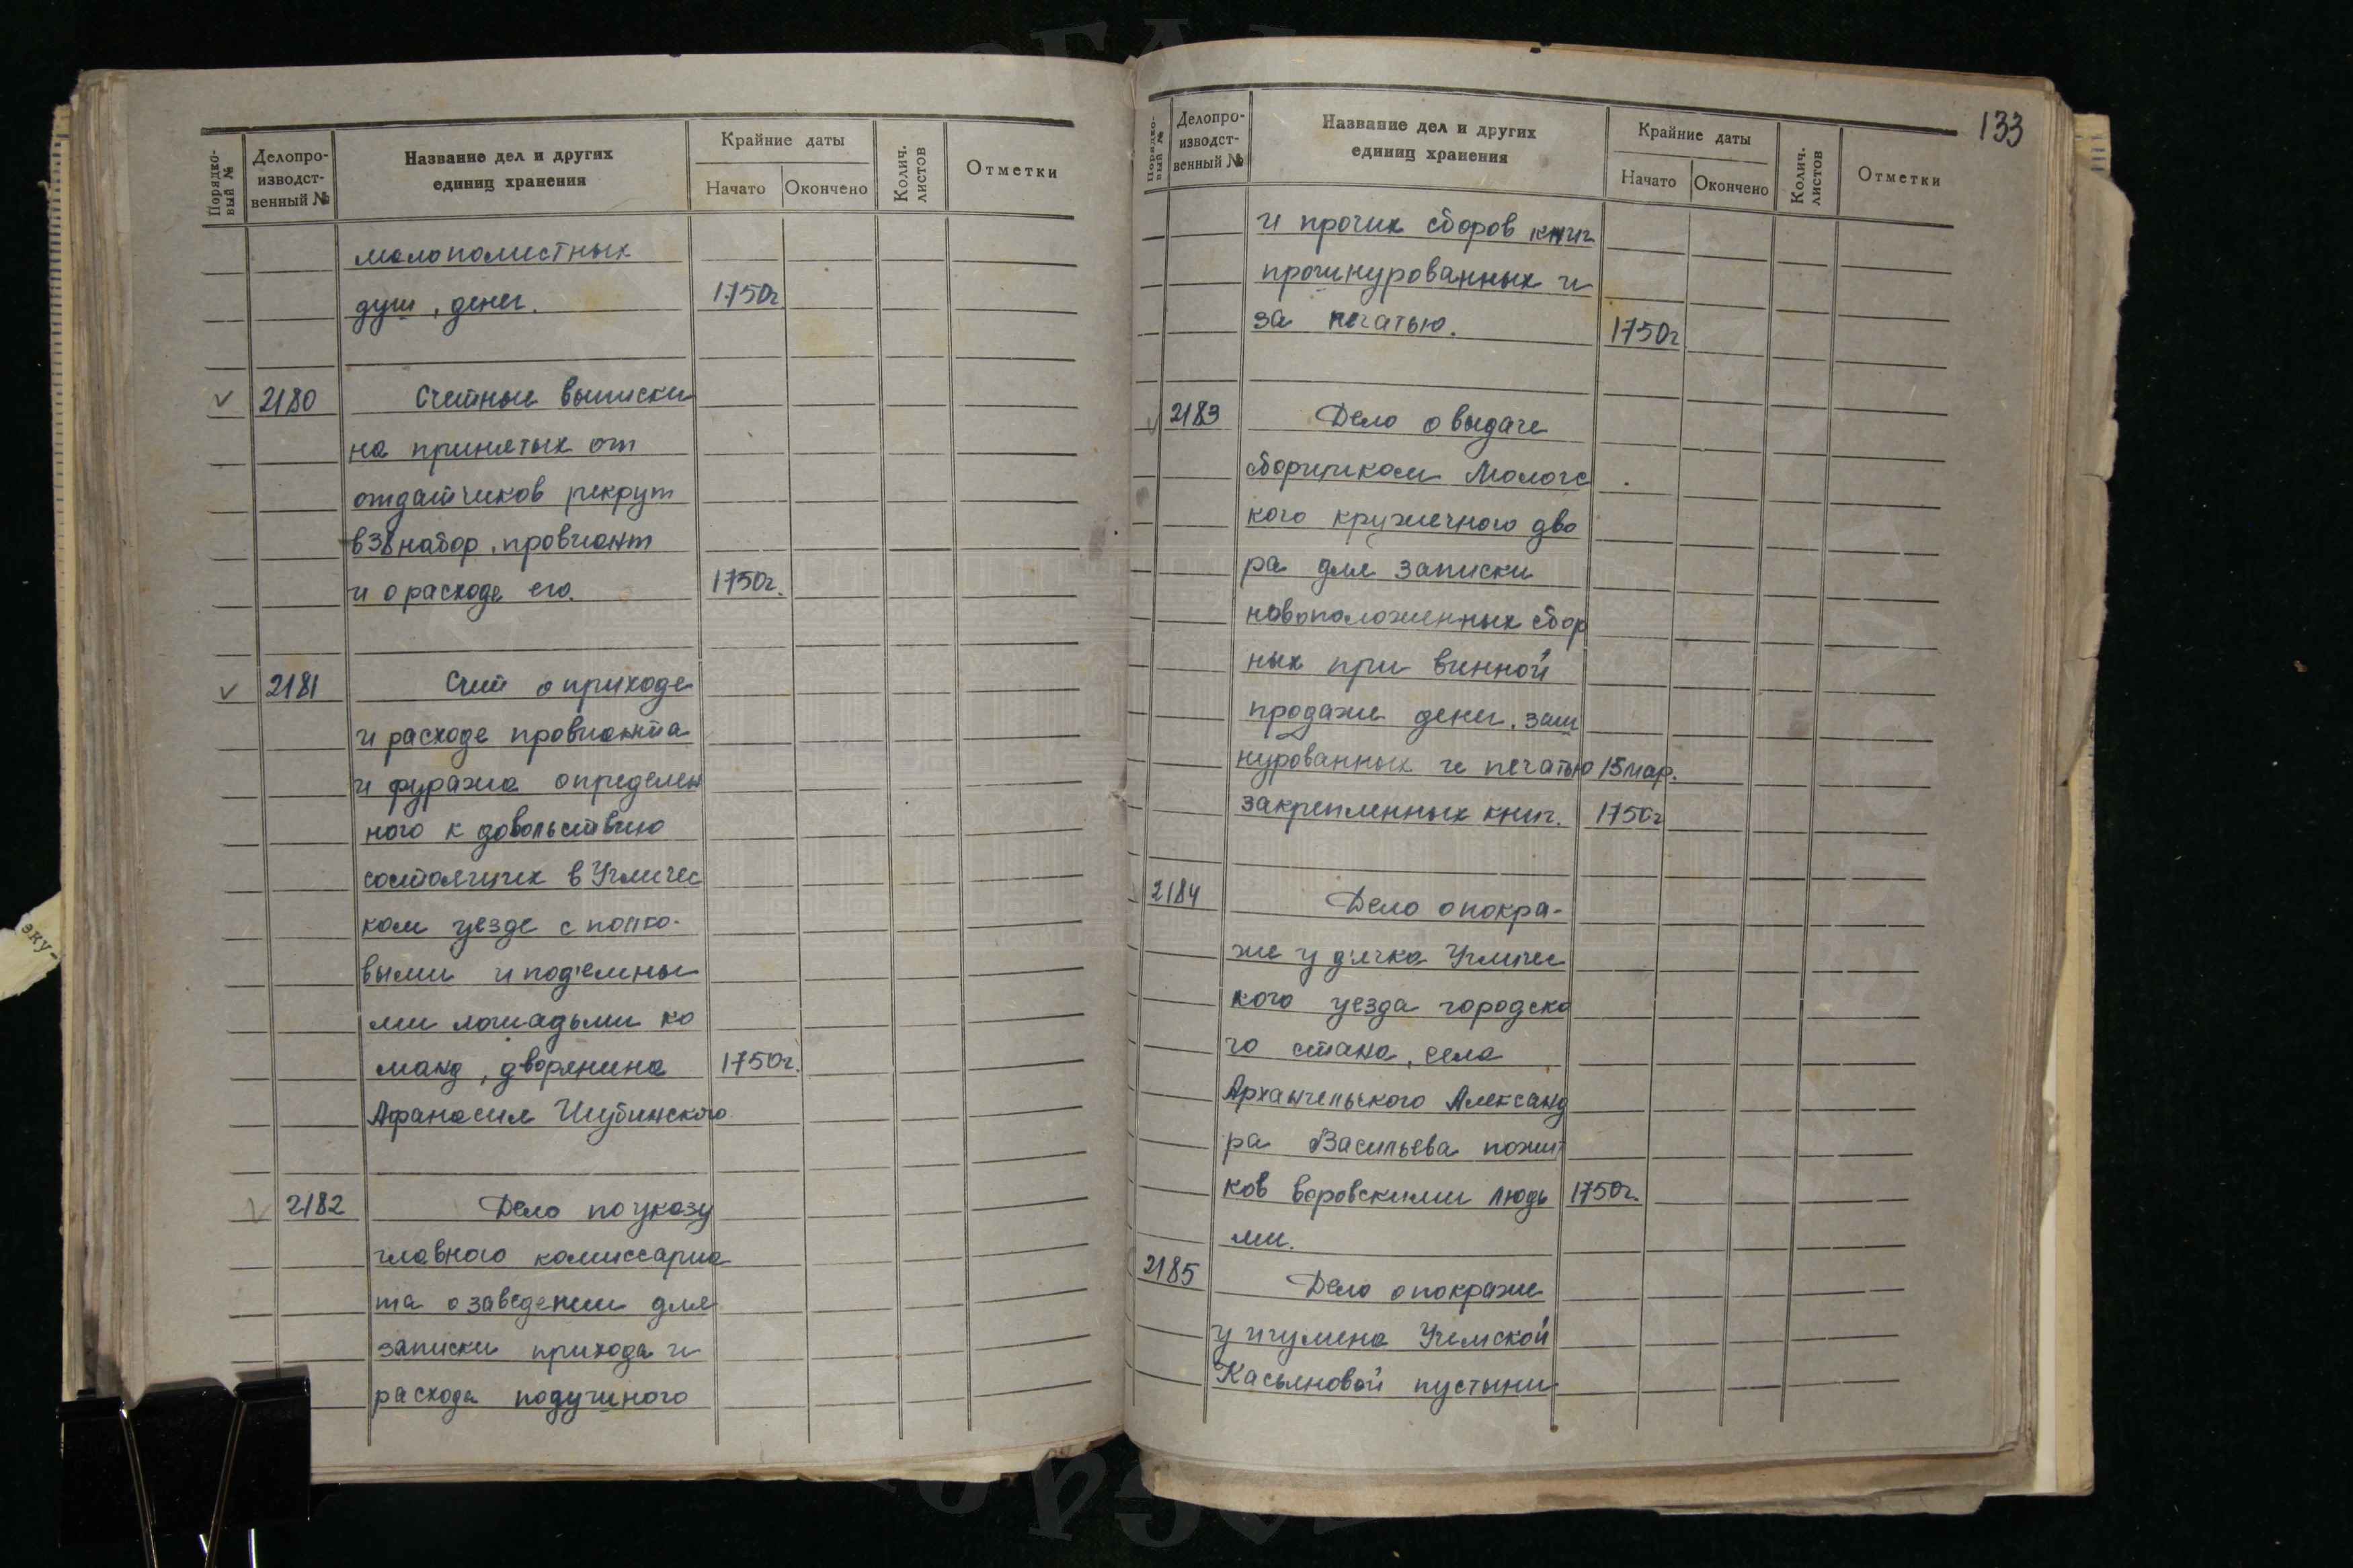 Порядко-
вый №
Делопро-
изводст-
венный №
Название дел и других
единиц хранения
Крайние даты
Начато
Окончено
Колич.
листов
Отметки
малопоместных
душ, денег. 1750г
2180 Счетные выписки
на принятых от
отдатчиков рекрут
в 38 набор, провиант
и о расходе его. 1750г.
2181 Счет о приходе
и расходе провианта
и фуража определен
ного к довольствию
состоящих в Угличес
ком уезде с полко-
выми и под'емны
ми лошадьми ко
манд, дворянина 1750г.
Афанасия Шубинского
2182 Дело по указу
главного комиссариа
та о заведении для
записки прихода и
расхода подушного
133
Порядко-
вый №
Делопро-
изводст-
венный №
Название дел и других
единиц хранения
Крайние даты
Начато
Окончено
Колич.
листов
Отметки
и прочих сборов книг
прошнурованных и
за печатью. 1750г
2183 Дело о выдаче
сборщикам Мологс
кого кружечного дво
ра для записки
новоположенных сбор
ных при винной
продаже денег, заш
нурованных и печатью 15 мар.
закрепленных книг. 1750г
2184 Дело о покра-
же у д'ячка Угличес
кого уезда городско
го стана, села
Архангельского Александ
ра Васильева пожит
ков воровскими людь 1750г.
ми.
2185 Дело о покраже
у игумена Учемской
Касьяновой пустыни
эку-